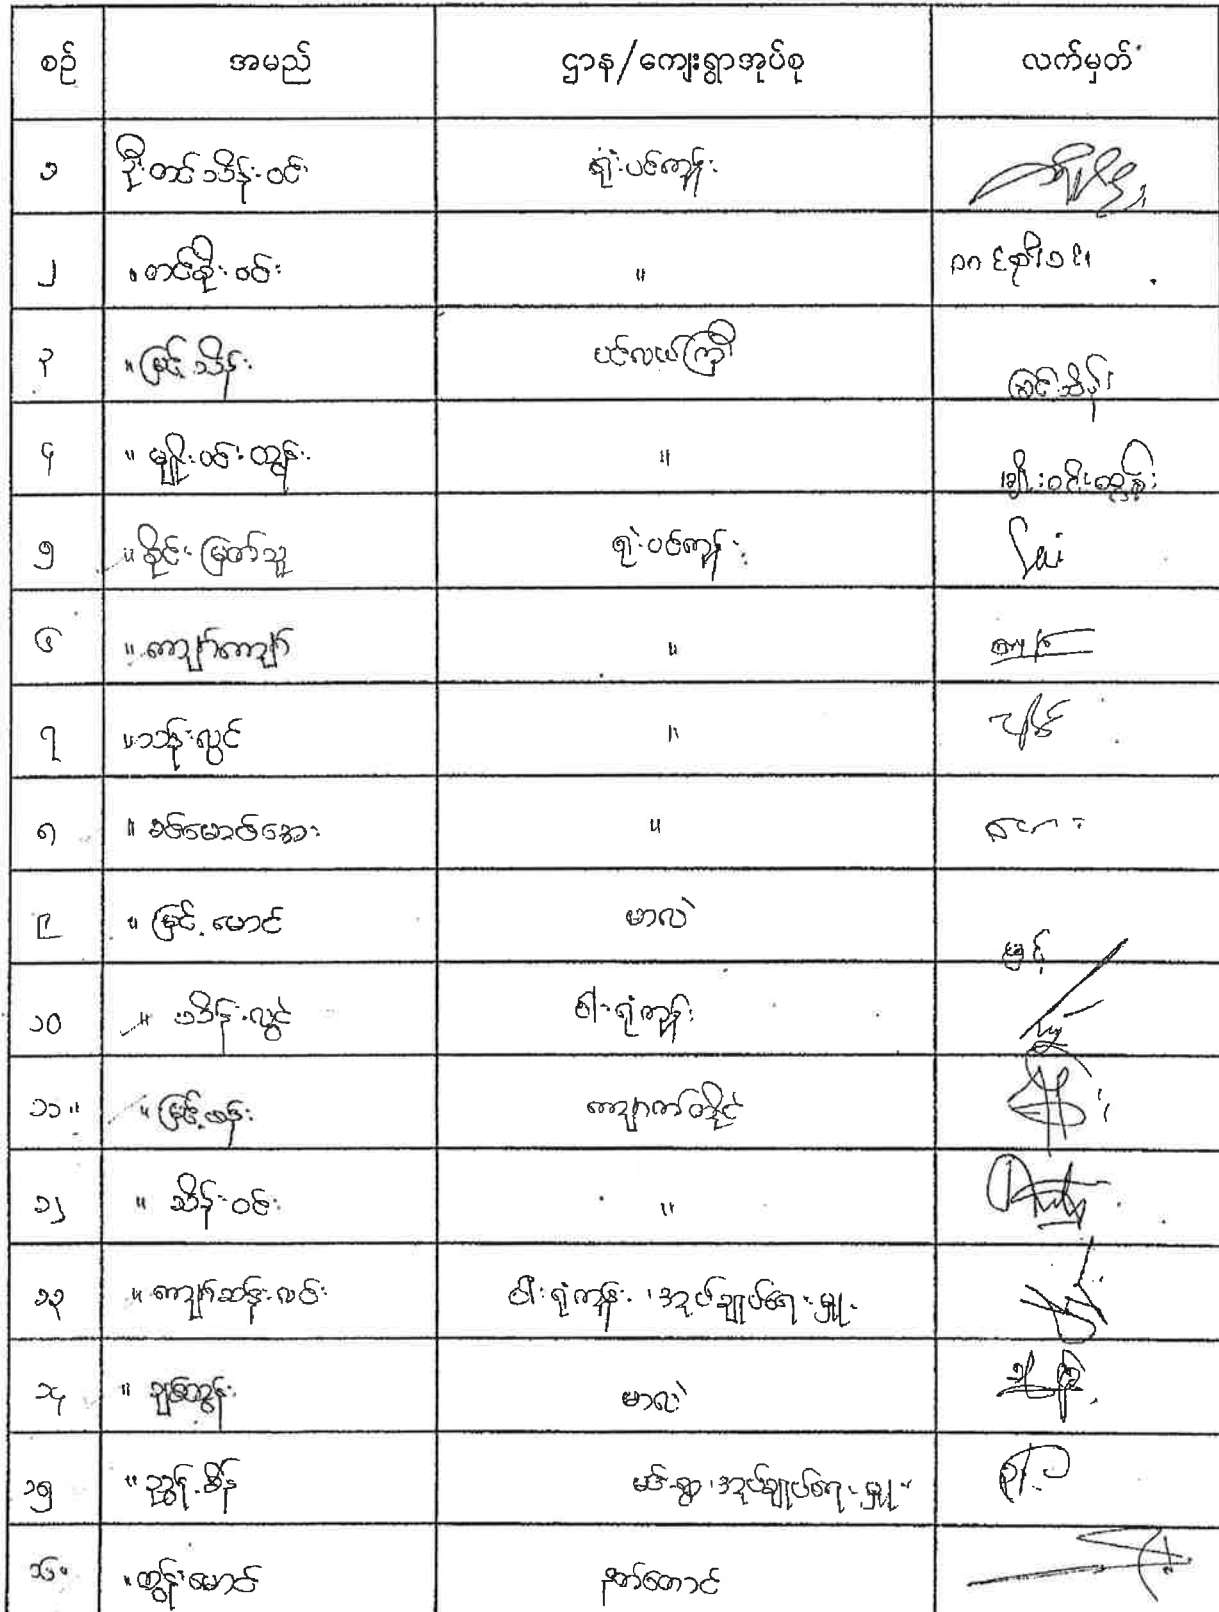 စဉ် အမည် ဌာန/ကျေးရွာအုပ်စု လက်မှတ်
၁ ဦးတင်သိန်းဝင်း ရုံးပင်ကျွန်း
၂ " တင်စိုးဝင်း "
၃ " မြင့်သိန်း ပင်လယ်ကြီး မြင့်သိန်း
၄ " မျိုးဝင်းထွန်း " မျိုးဝင်းထွန်း
၅ " စိုင်းမြတ်သူ ရုံးပင်ကျွန်း Sai
၆ " ကျော်ကျော် "
၇ " သန်းလွင် "
၈ " ခင်မောင်အေး "
၉ " မြင့်မောင် မာလဲ မြင့်
၁၀ " သိန်းလွင် ဝါးရုံကျွန်း
၁၁။ " မြင့်ဝန်း ကျောက်တိုင်
၁၂ " သိန်းဝင်း "
၁၃ " ကျော်ဆန်းလင်း ဝါးရုံကျွန်း၊ အုပ်ချုပ်ရေးမှူး
၁၄ " ချစ်ထွန်း မာလဲ
၁၅ " ညွန့်စိန် အုပ်ချုပ်ရေးမှူး
၁၆။ " ထွန်းမောင် နတ်တောင်